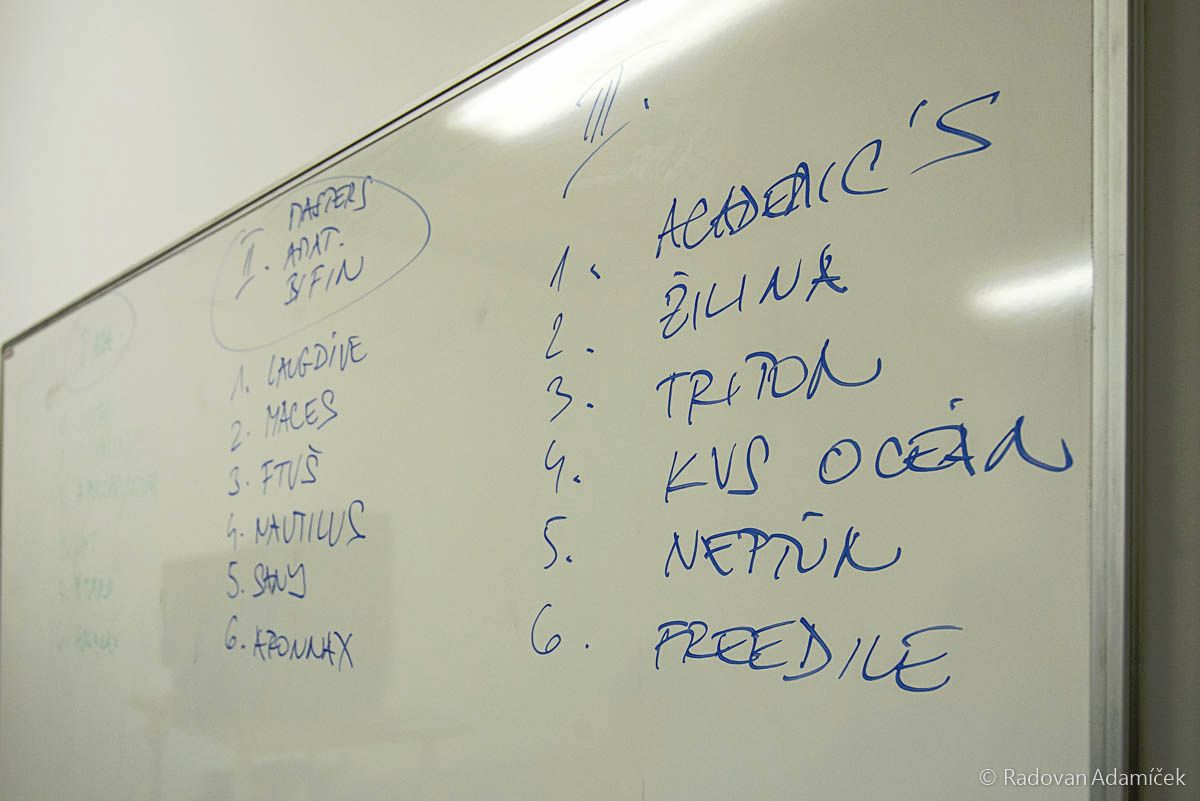 II. MASTERS
AMAT.
BIFIN
1. LAUGDIVE
2. MACES
3. FTUŠ
4. NAUTILUS
5. SANY
6. ARONNAX
III.
1. ACADEMIC'S
2. ŽILINA
3. TRITON
4. KVS OCEÁN
5. NEPTÚN
6. FREEDILE
© Radovan Adamíček